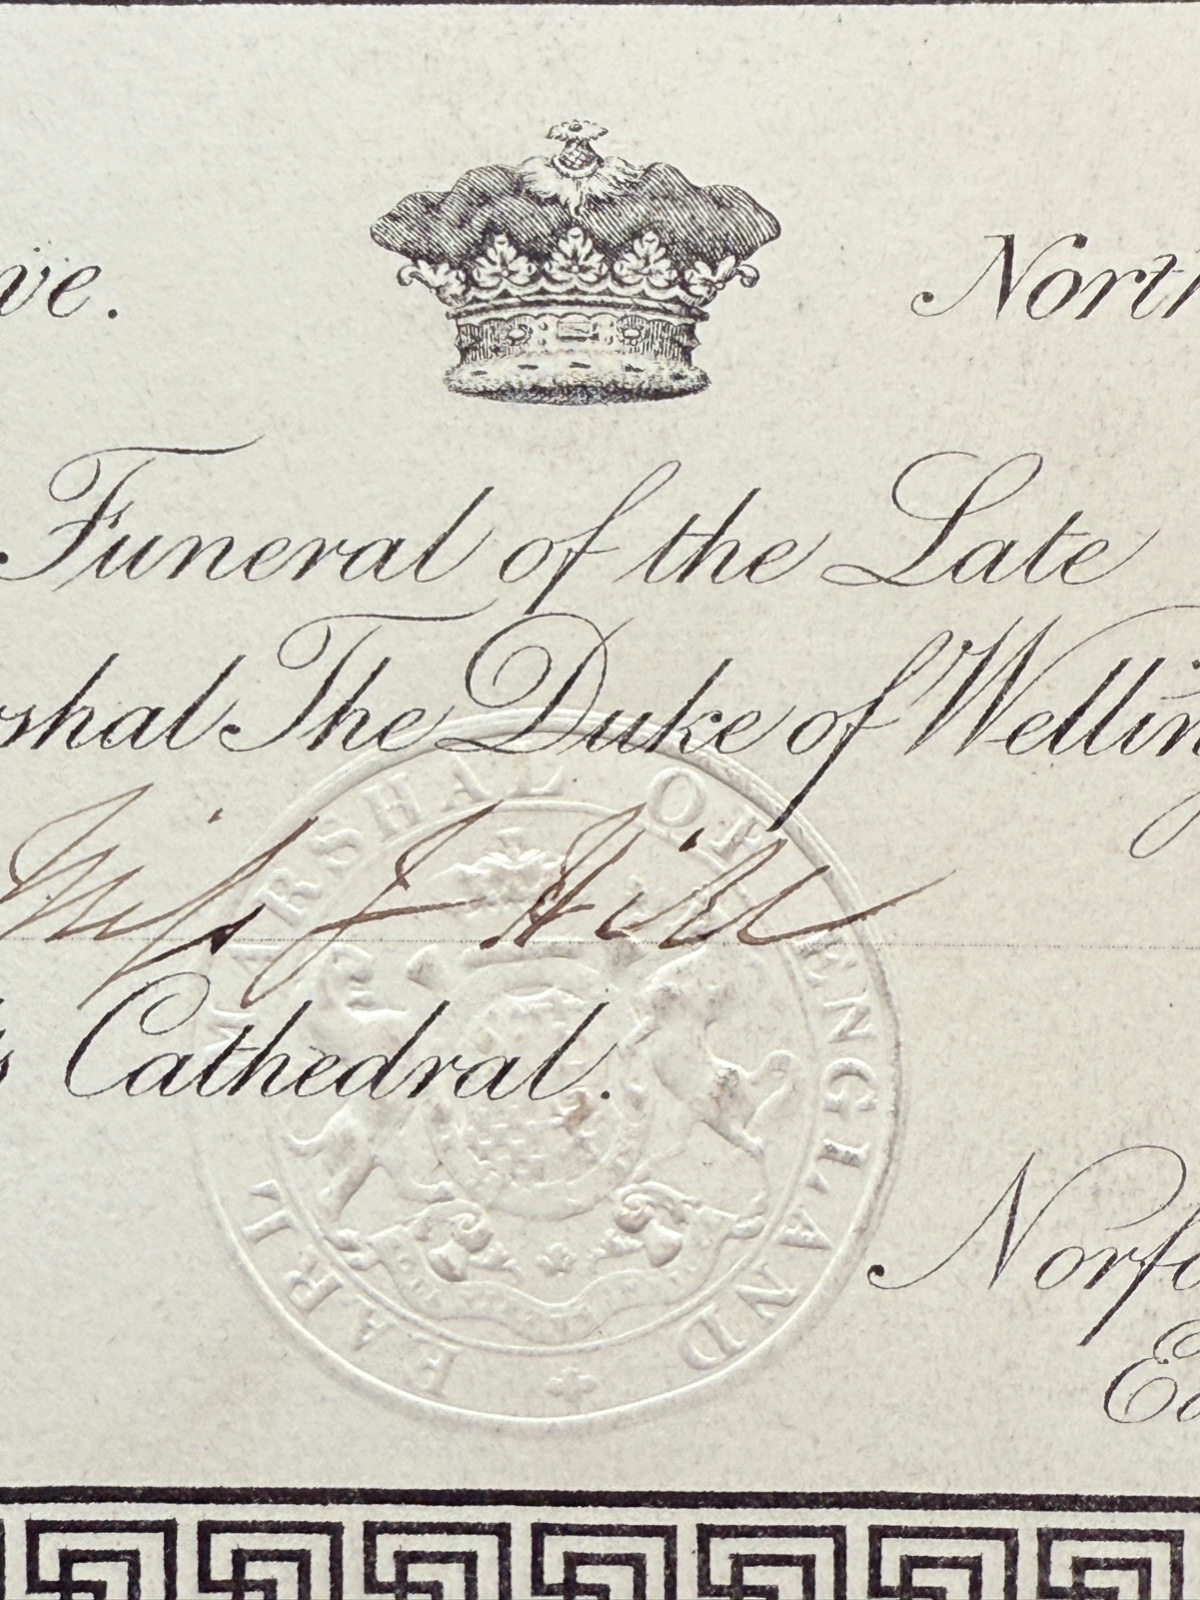 ve. North
Funeral of the Late
rshal The Duke of Welling
Miss J Hill
s Cathedral.
Norfo
Ea
EARL MARSHAL OF ENGLAND